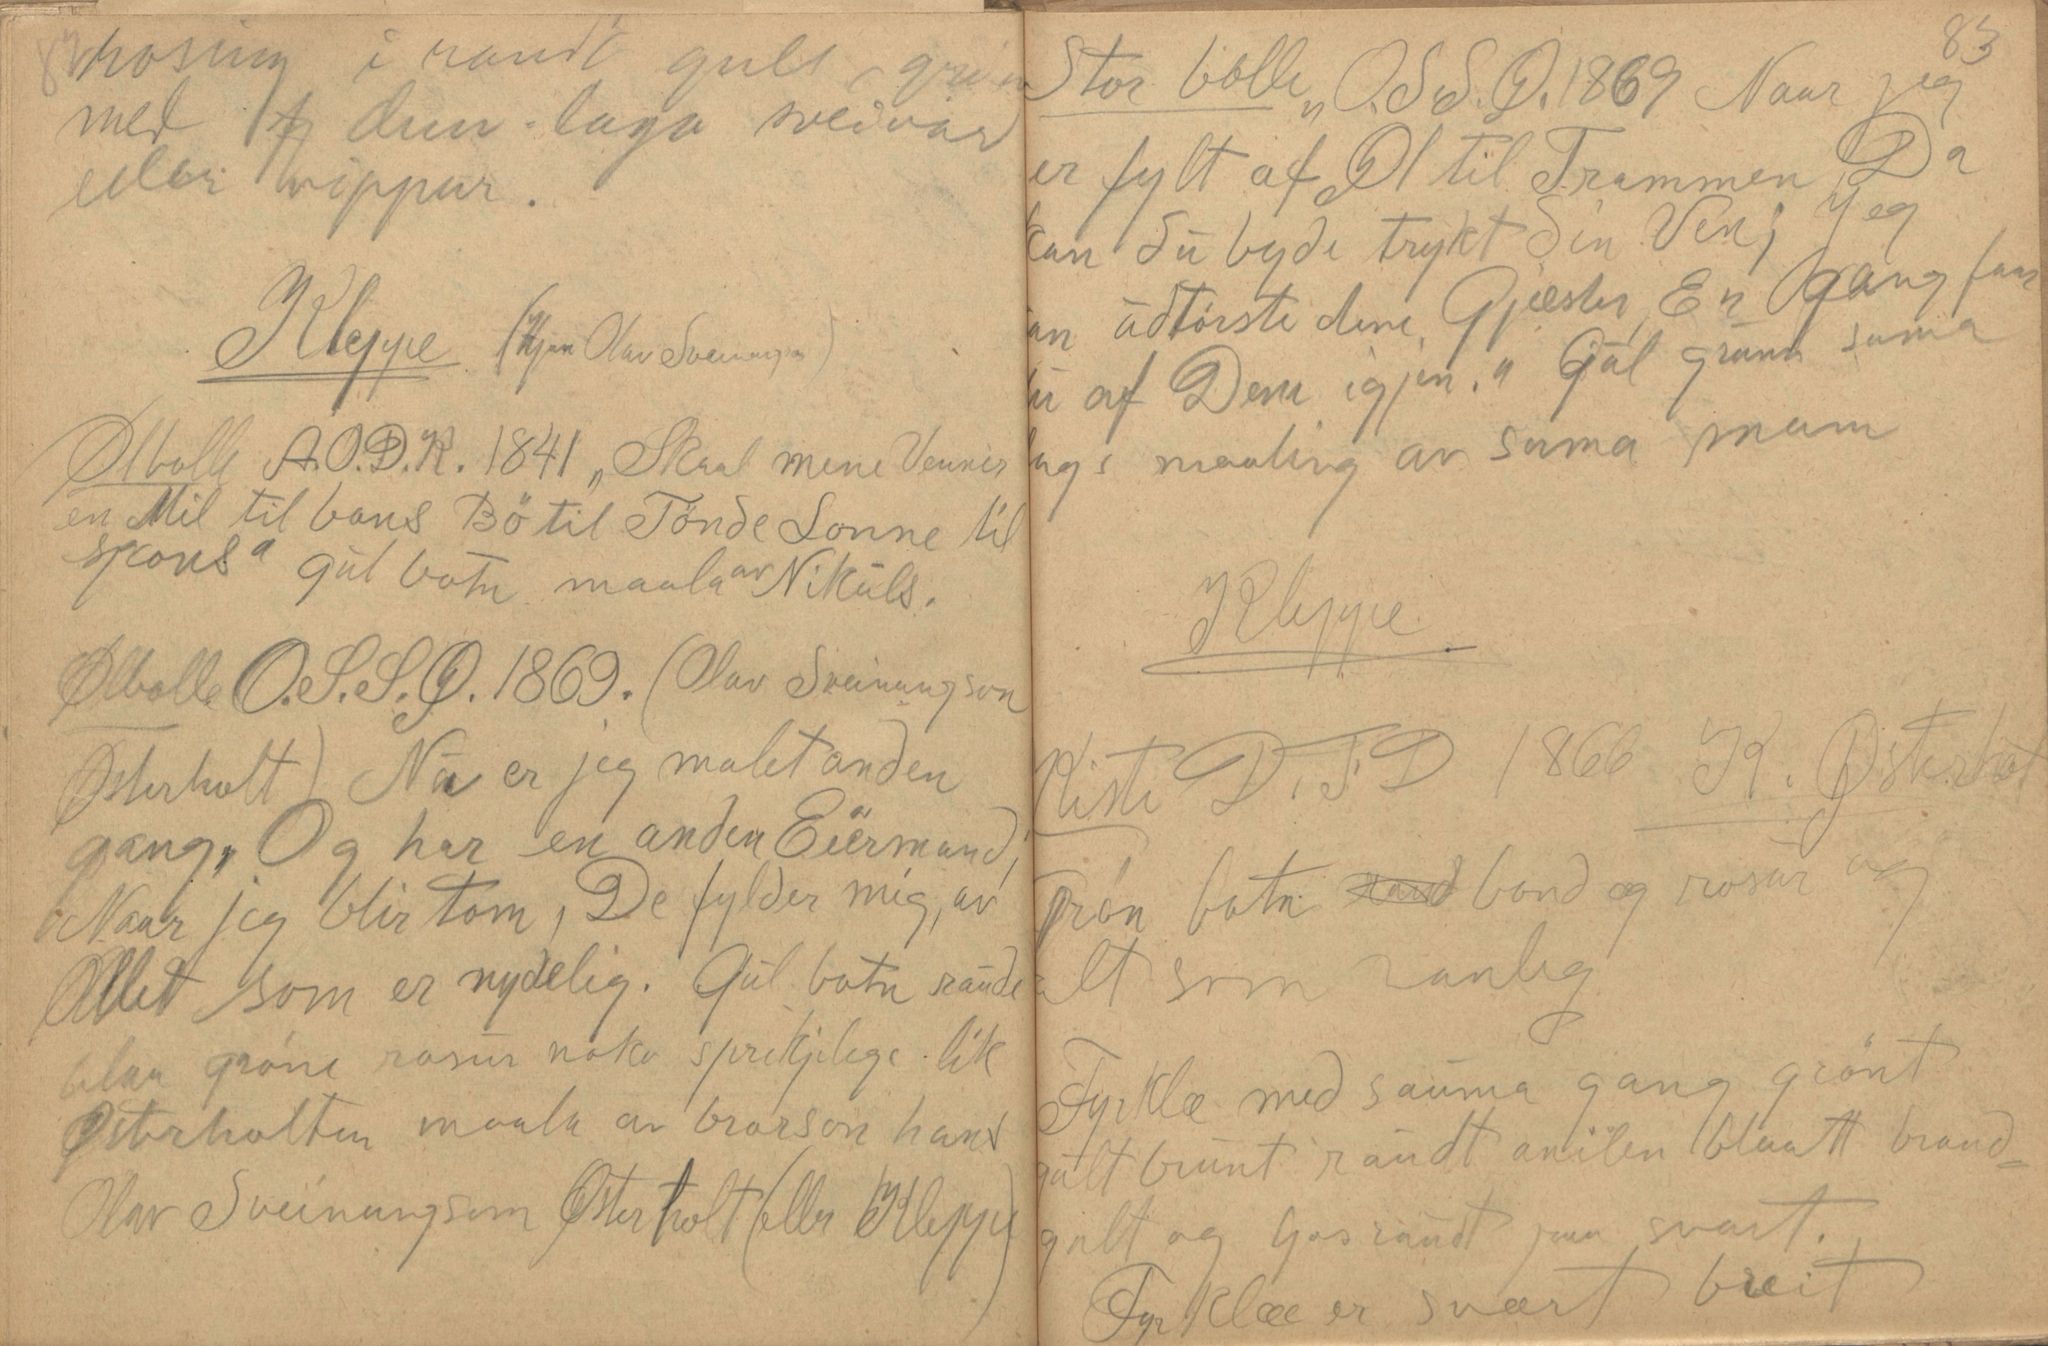 82
rosing i raudt gult, grön
med dun-laga sveivar
eller vippur.
Kleppe (Hjaa Olav Sveinungson)
Ølbolle A.O.D.K. 1841 „Skaal mene Venner
en Mil til bons Bö til Tönde Sonne til
spons" gül botn maala av Niküls.
Ølbolle O.S.S.Ø. 1869. (Olav Sveinungson
Østerholt) Nü er jeg malet anden
gang„ Og har en anden Eiermand,
Naar jeg blir tom, De fylder mig, av
Øllet som er nydelig. Gül botn raude
blaa gröne rosür noko sprikjelege lik
Østerholten maala av brorson hans
Olav Sveinungsom Østerholt (eller Kleppe)
83
Stor bolle „O.S.S.Ø. 1869 Naar jeg
er fylt af Øl til Trammen, Da
kan dü byde trykt din Ven; Jeg
kan üdtörste dine Gjæster, En Gang faar
dü af Dem igjen." Gül grunn sama
lags maaling av sama mann
Kleppe
Kiste D.T.D 1866 K. Østerholt
Grön botn band og rosür og
alt som vanleg
Fyrklæ med saüma gang grönt
gült brünt raüdt anilen blaatt brand-
gült og gosraüdt paa svart.
Fyrklæe er svært breit